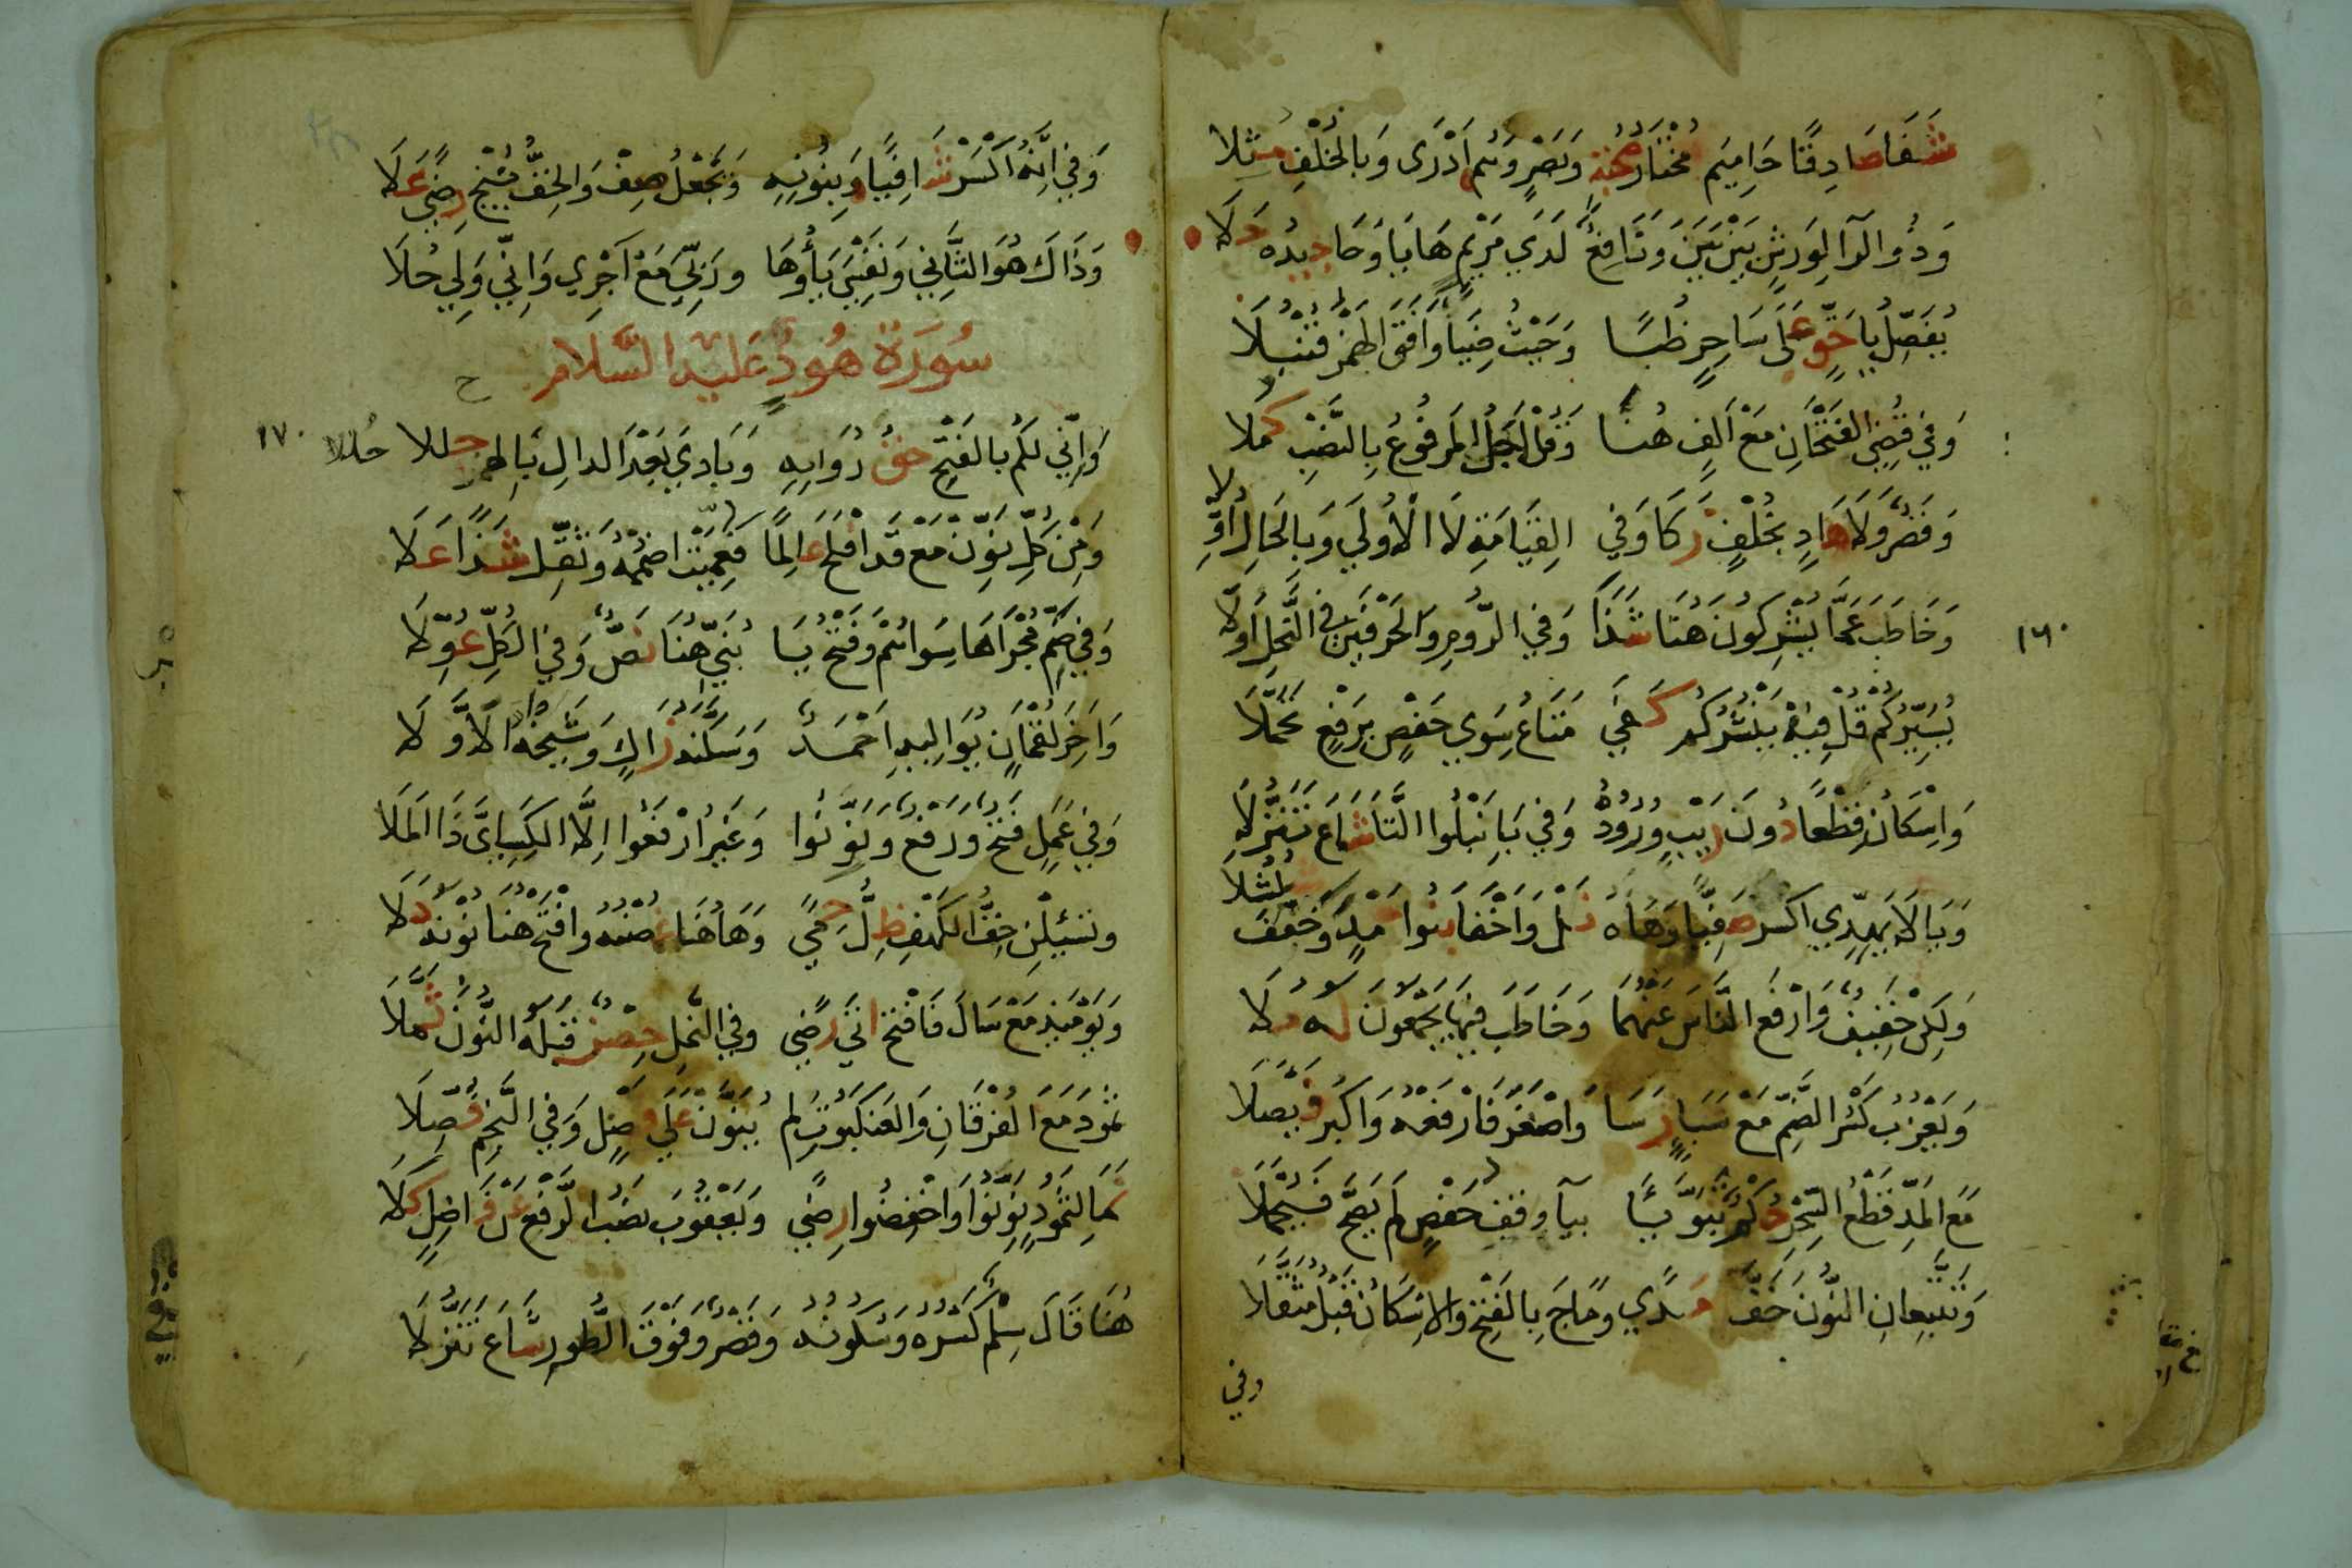 شَفَا صَادِقًا حَامِيمَ مُخْتَارُ صُحْبَةٍ وَبَصْرٍ وَهُم أَدْرَى وَبِالخُلْفِ مُثِّلا
وَذُو الرَّا لِوَرْشٍ بَيْنَ بَيْنَ وَنَافِعٌ لَدَى مَرْيَمٍ هَايَا وَحَا جِيدُهُ حَلَا
يُفَصِّلُ يَا حَقٍّ عَلَى سَاحِرٌ ظُبًى وَحَيْثُ ضِيَاءً وَافَقَ الهَمْزُ قُنْبُلَا
وَفِي قُضِيَ الفَتْحَانِ مَعْ أَلِفٍ هُنَا وَقُلْ أَجَلُ المَرْفُوعُ بِالنَّصْبِ كُمِّلا
وَقَصْرُ وَلَا هَادٍ بِخُلْفٍ زَكَا وَفِي القِيَامَةِ لَا الأُولَى وَبِالحَالِ أُوِّلا
وَخَاطَبَ عَمَّا يُشْرِكُونَ هُنَا شَذًا وَفِي الرُّومِ وَالحَرْفَيْنِ فِي النَّحْلِ أَوَّلا
١٦٠
يُسَيِّرُكُمْ قُلْ فِيهِ يَنْشُرُكُمْ كَفَى مَتَاعُ سِوَى حَفْصٍ بِرَفْعٍ تَحَمَّلَا
وَإِسْكَانُ قِطْعًا دُونَ رَيْبٍ وُرُودُهُ وَفِي بَاءِ تَبْلُوا التَّاءُ شَاعَ تَنَزُّلَا
وَيَا لَا يَهِدِّي اكْسِرْ صَفِيًّا وَهَاهُ نَلْ وَأَخْفَى بَنُوا حَمْدٍ وَخُفِّفَ شُلْشُلَا
وَلَكِنْ خَفِيفٌ وَارْفَعِ النَّاسَ عَنْهُمَا وَخَاطَبَ فِيهَا يَجْمَعُونَ لَهُ مُلَا
وَيَعْزُبُ كَسْرُ الضَّمِّ مَعْ سَبَإٍ رَسَا وَأَصْغَرَ فَارْفَعْهُ وَأَكْبَرَ فَيْصَلَا
مَعَ المَدِّ قَطْعُ السِّحْرِ حُكْمٌ تَبَوَّءَا بِيَا وَقْفِ حَفْصٍ لَمْ يَصِحَّ فَيُحْمَلَا
وَتَتَّبِعَانِ النُّونُ خَفَّ مَدًى وَمَاجَ بِالفَتْحِ وَالإِسْكَانِ قَبْلُ مُثَقَّلَا
وفي
وَفِي إِنَّهُ اكْسِرْ شَافِيًا وَبِنُونِهِ وَنَجْعَلُ صِفْ وَالخِفُّ نُنْجِ رِضًى عَلَا
وَذَاكَ هُوَ الثَّانِي وَنَفْسِيَ يَاؤُهَا وَرَبِّيَ مَعْ أَجْرِي وَإِنِّي وَلِي حُلَا
سُورَة هُودٍ عَلَيْهِ السَّلَام
وَإِنِّي لَكُمْ بِالفَتْحِ حَقُّ رُوَاتِهِ وَبَادِيَ بَعْدَ الدَالِ بِالهَمْزِ حُلِّلَا
١٧٠
وَمِنْ كُلِّ نَوِّنْ مَعْ قَدْ افْلَحَ عَالِمًا فَعُمِّيَتِ اضْمُمْهُ وَثَقِّلْ شَذًا عَلَا
وَفِي ضَمِّ مُجْرَاهَا سِوَاهُمْ وَفَتْحُ يَا بُنَيِّ هُنَا نَصٌّ وَفِي الكُلِّ عُوِّلَا
وَآخِرَ لُقْمَانٍ يُوَالِيهِ أَحْمَدٌ وَسَكَّنَهُ زَاكٍ وَشَيْخُهُ الأَوَّلَا
وَفِي عَمَلٌ فَتْحٌ وَرَفْعٌ وَنَوِّنُوا وَغَيْرُ ارْفَعُوا إِلَّا الكِسَائِيَّ ذَا المَلَا
وَتَسْئَلْنِ خِفُّ الكَهْفِ ظِلُّ حِمًى وَهَاهُنَا غُصْنُهُ وَافْتَحْ هُنَا نُونَهُ دَلَا
وَيَوْمَئِذٍ مَعْ سَالَ فَافْتَحْ أَتَى رِضًى وَفِي النَّمْلِ حِصْنٌ قَبْلَهُ النُّونُ ثُمِّلَا
ثَمُودَ مَعَ الفُرْقَانِ وَالعَنْكَبُوتِ لَمْ يُنَوَّنْ عَلَى فَصْلٍ وَفِي النَّجْمِ فُصِّلَا
نَمَا لِثَمُودٍ نَوِّنُوا وَاخْفِضُوا رِضًى وَيَعْقُوبَ نَصْبُ الرَّفْعِ عَنْ فَاضِلٍ كَلَا
هُنَا قَالَ سِلْمٌ كَسْرُهُ وَسُكُونُهُ وَقَصْرٌ وَفَوْقَ الطُّورِ شَاعَ تَنَزُّلَا